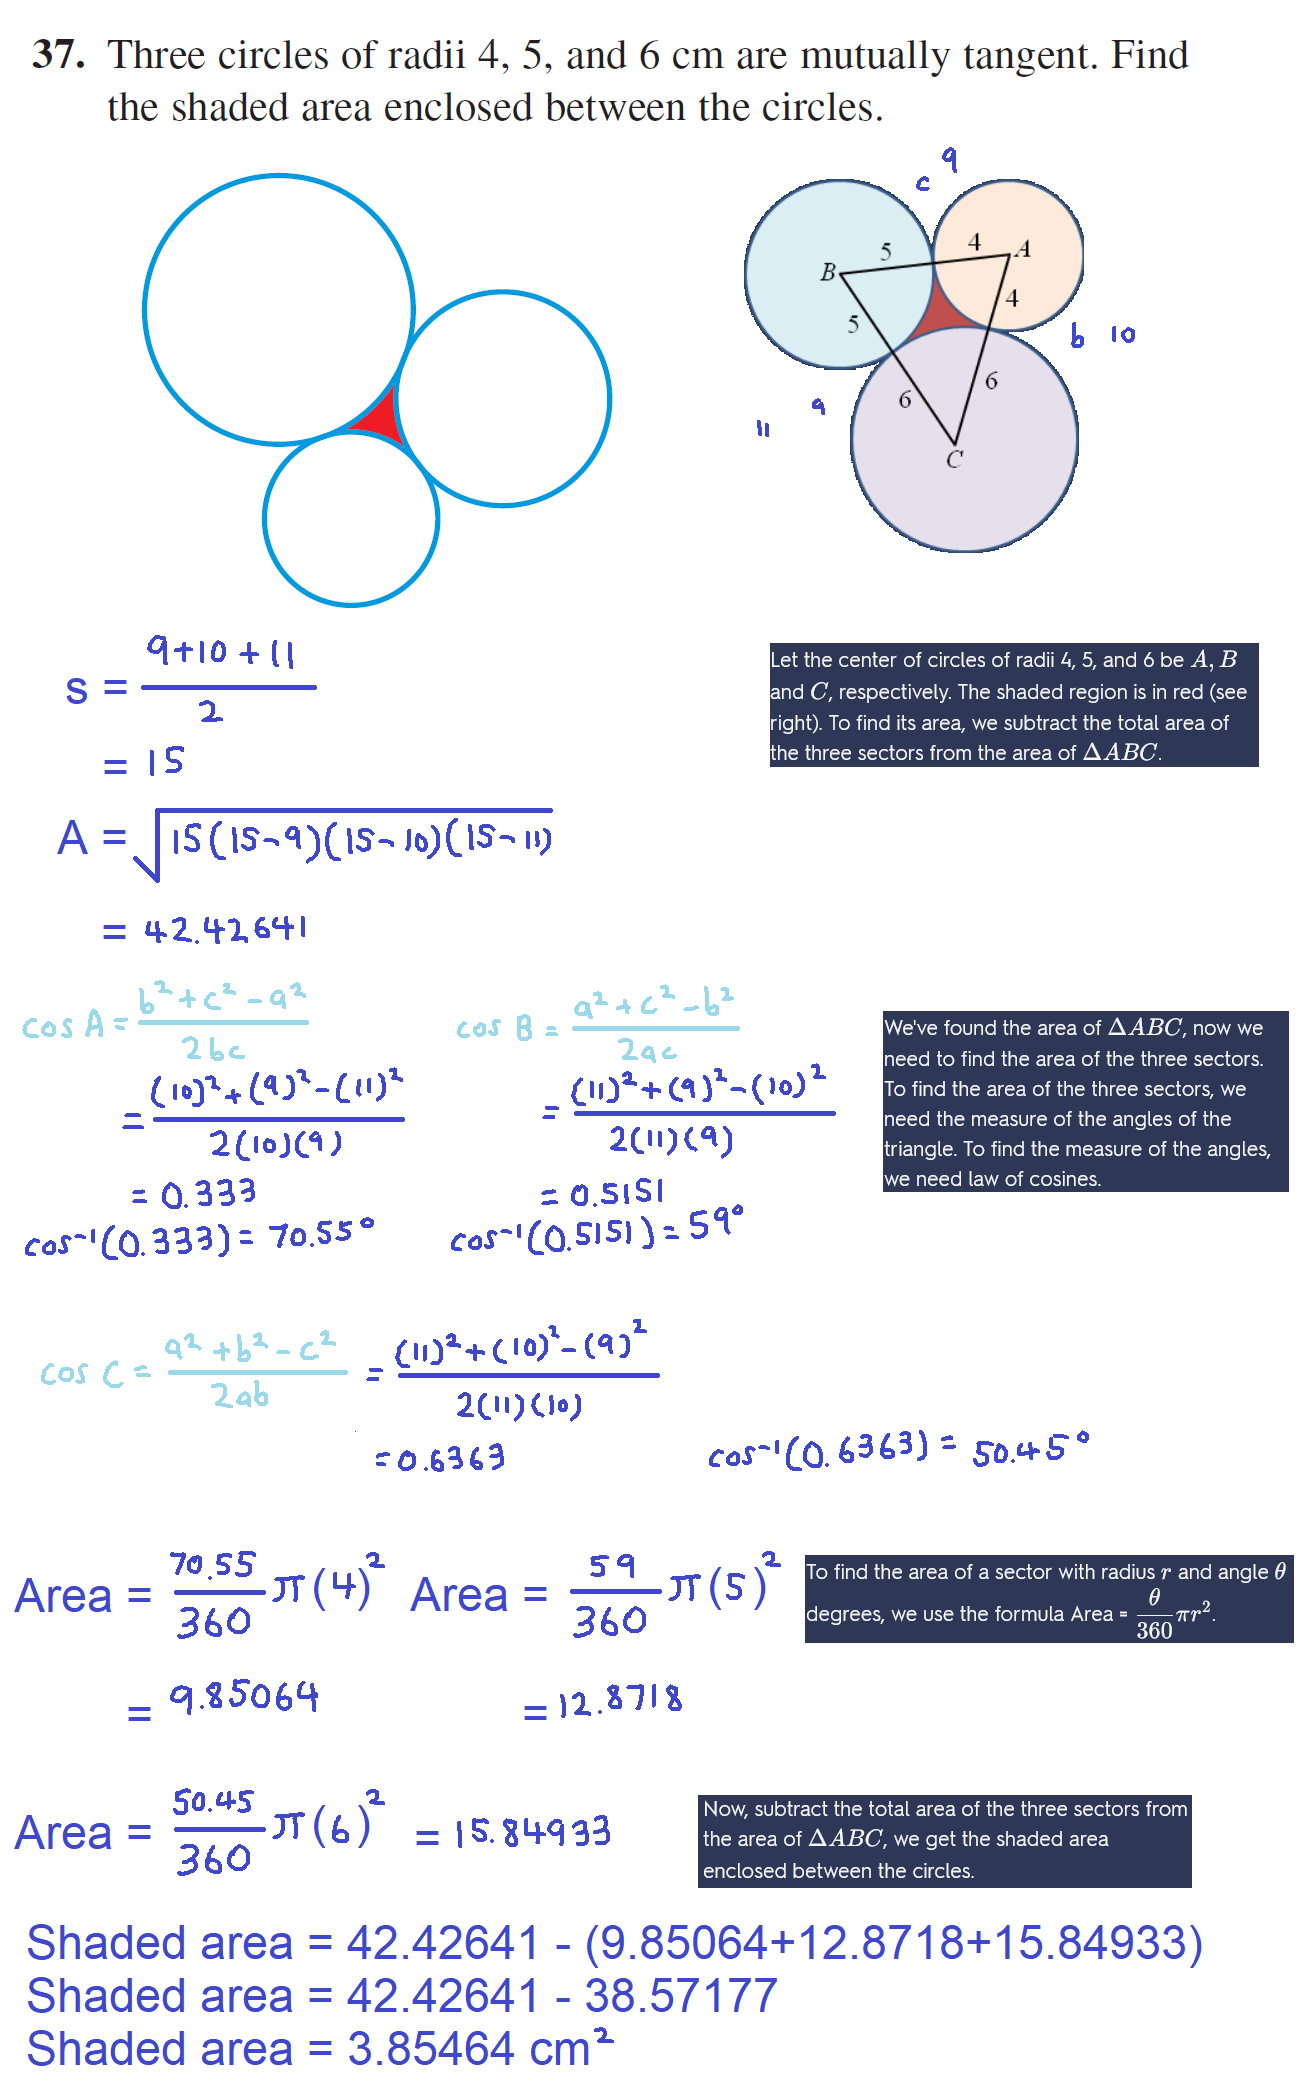 37. Three circles of radii 4, 5, and 6 cm are mutually tangent. Find
the shaded area enclosed between the circles.
c 9
B 5 4 A
5 4
b 10
6 6
11 9
C
s = (9+10+11)/2
= 15
A = √15(15-9)(15-10)(15-11)
= 42.42641
Let the center of circles of radii 4, 5, and 6 be A, B
and C, respectively. The shaded region is in red (see
right). To find its area, we subtract the total area of
the three sectors from the area of ΔABC.
cos A = (b²+c²-a²)/(2bc)
= ((10)²+(9)²-(11)²)/(2(10)(9))
= 0.333
cos⁻¹(0.333) = 70.55°
cos B = (a²+c²-b²)/(2ac)
= ((11)²+(9)²-(10)²)/(2(11)(9))
= 0.5151
cos⁻¹(0.5151) = 59°
We've found the area of ΔABC, now we
need to find the area of the three sectors.
To find the area of the three sectors, we
need the measure of the angles of the
triangle. To find the measure of the angles,
we need law of cosines.
cos C = (a²+b²-c²)/(2ab) = ((11)²+(10)²-(9)²)/(2(11)(10))
= 0.6363
cos⁻¹(0.6363) = 50.45°
Area = 70.55/360 π(4)²
= 9.85064
Area = 59/360 π(5)²
= 12.8718
To find the area of a sector with radius r and angle θ
degrees, we use the formula Area = θ/360 πr².
Area = 50.45/360 π(6)² = 15.84933
Now, subtract the total area of the three sectors from
the area of ΔABC, we get the shaded area
enclosed between the circles.
Shaded area = 42.42641 - (9.85064+12.8718+15.84933)
Shaded area = 42.42641 - 38.57177
Shaded area = 3.85464 cm²